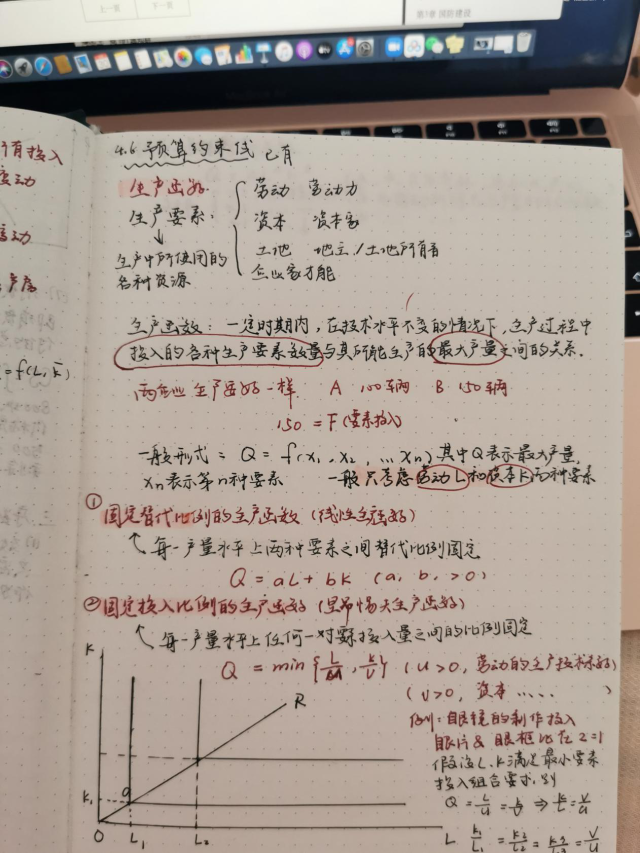 上一页 下一页
第5章 国防建设
所有投入
变动
变动
= f(L, K̄)
4.6 预算约束线 已有
生产函数
生产要素：
劳动 劳动力
资本 资本家
土地 地主/土地所有者
企业家才能
↓
生产中所使用的
各种资源
生产函数：一定时期内，在技术水平不变的情况下，生产过程中
投入的各种生产要素数量与其所能生产的最大产量之间的关系．
两企业生产函数一样 A 100车辆 B 150车辆
150 = F(要素投入)
一般形式：Q = f(x₁, x₂, ... xn) 其中Q表示最大产量，
xn表示第n种要素 一般只考虑劳动L和资本K两种要素
① 固定替代比例的生产函数 (线性生产函数)
每一产量水平上两种要素之间替代比例固定
Q = aL + bK (a, b, >0)
② 固定投入比例的生产函数 (里昂惕夫生产函数)
每一产量水平上任何一对要素投入量之间的比例固定
Q = min{L/u, K/v} (u>0, 劳动的生产技术系数)
(v>0, 资本 ..... )
例：眼镜的制作投入
眼片 & 眼框比在 2=1
假设L、K满足最小要素
投入组合要求，则
Q = L/u = K/v ⇒ K/L = v/u
K₁/L₁ = K₂/L₂ = K₃/L₃ = v/u
K
R
a
K₁
O L₁ L₂ L